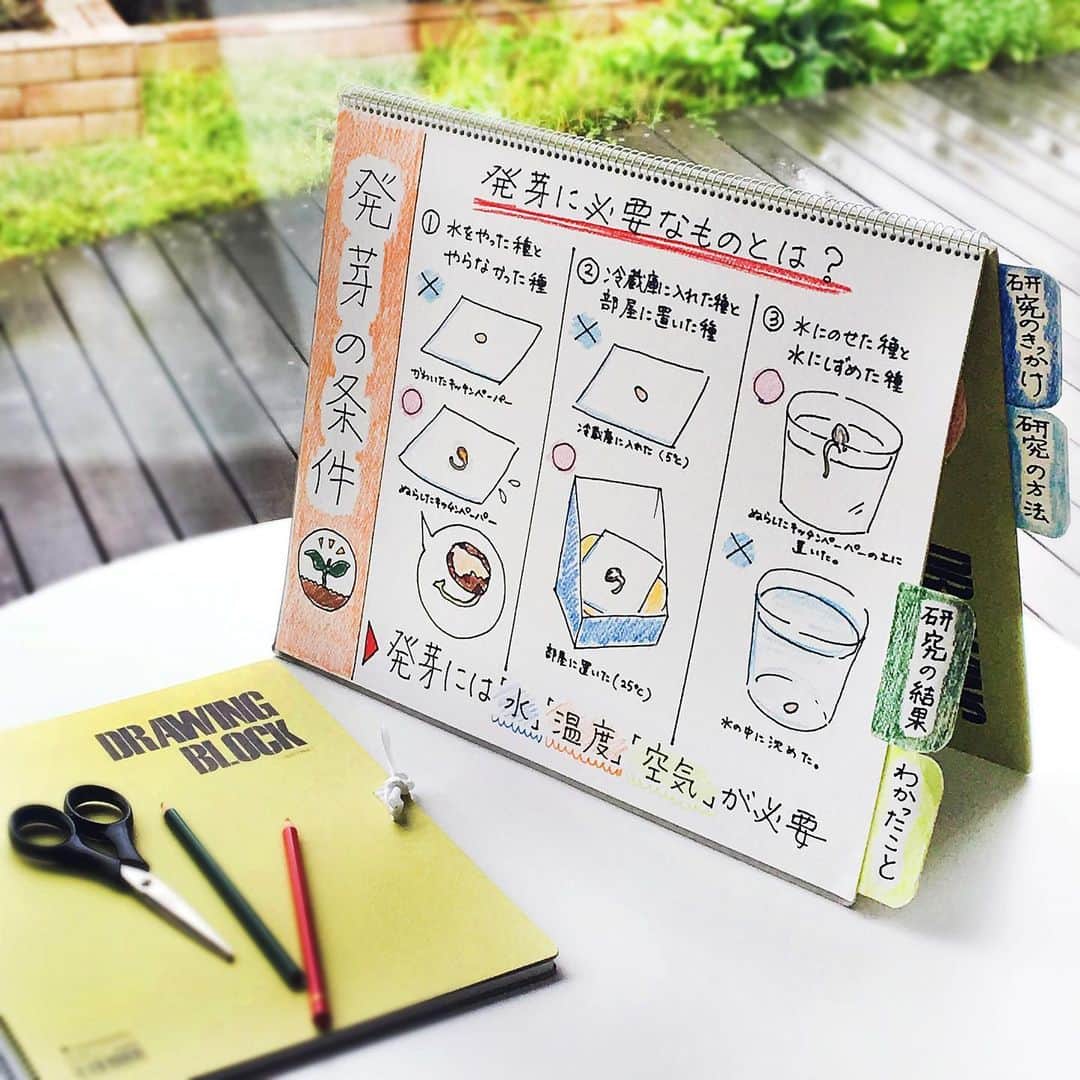 発芽の条件
発芽に必要なものとは?
① 水をやった種と
やらなかった種
かわいたキッチンペーパー
ぬらしたキッチンペーパー
② 冷蔵庫に入れた種と
部屋に置いた種
冷蔵庫に入れた(5℃)
部屋に置いた(25℃)
③ 水にのせた種と
水にしずめた種
ぬらしたキッチンペーパーの上に
置いた。
水の中に沈めた。
発芽には「水」「温度」「空気」が必要
研究のきっかけ
研究の方法
研究の結果
わかったこと
DRAWING
BLOCK